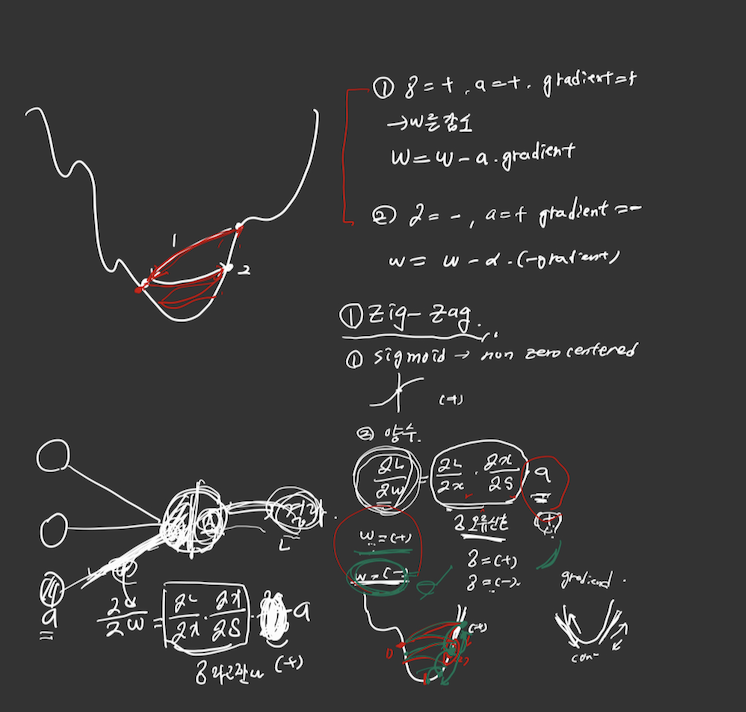 ① δ = +, a = +. gradient = +
→ w를 감소
w = w - a. gradient
② δ = -, a = + gradient = -
w = w - α. (-gradient)
1
2
① zig-zag.
① sigmoid → non zero centered
(+)
② 양수.
∂L/∂w = ∂L/∂x · ∂x/∂s · a
(+)
w = (+)
δ = (+)
w = (-)
δ = (-)
gradient.
L
a
∂L/∂w = ∂L/∂x · ∂x/∂s · a
(+)
(+)